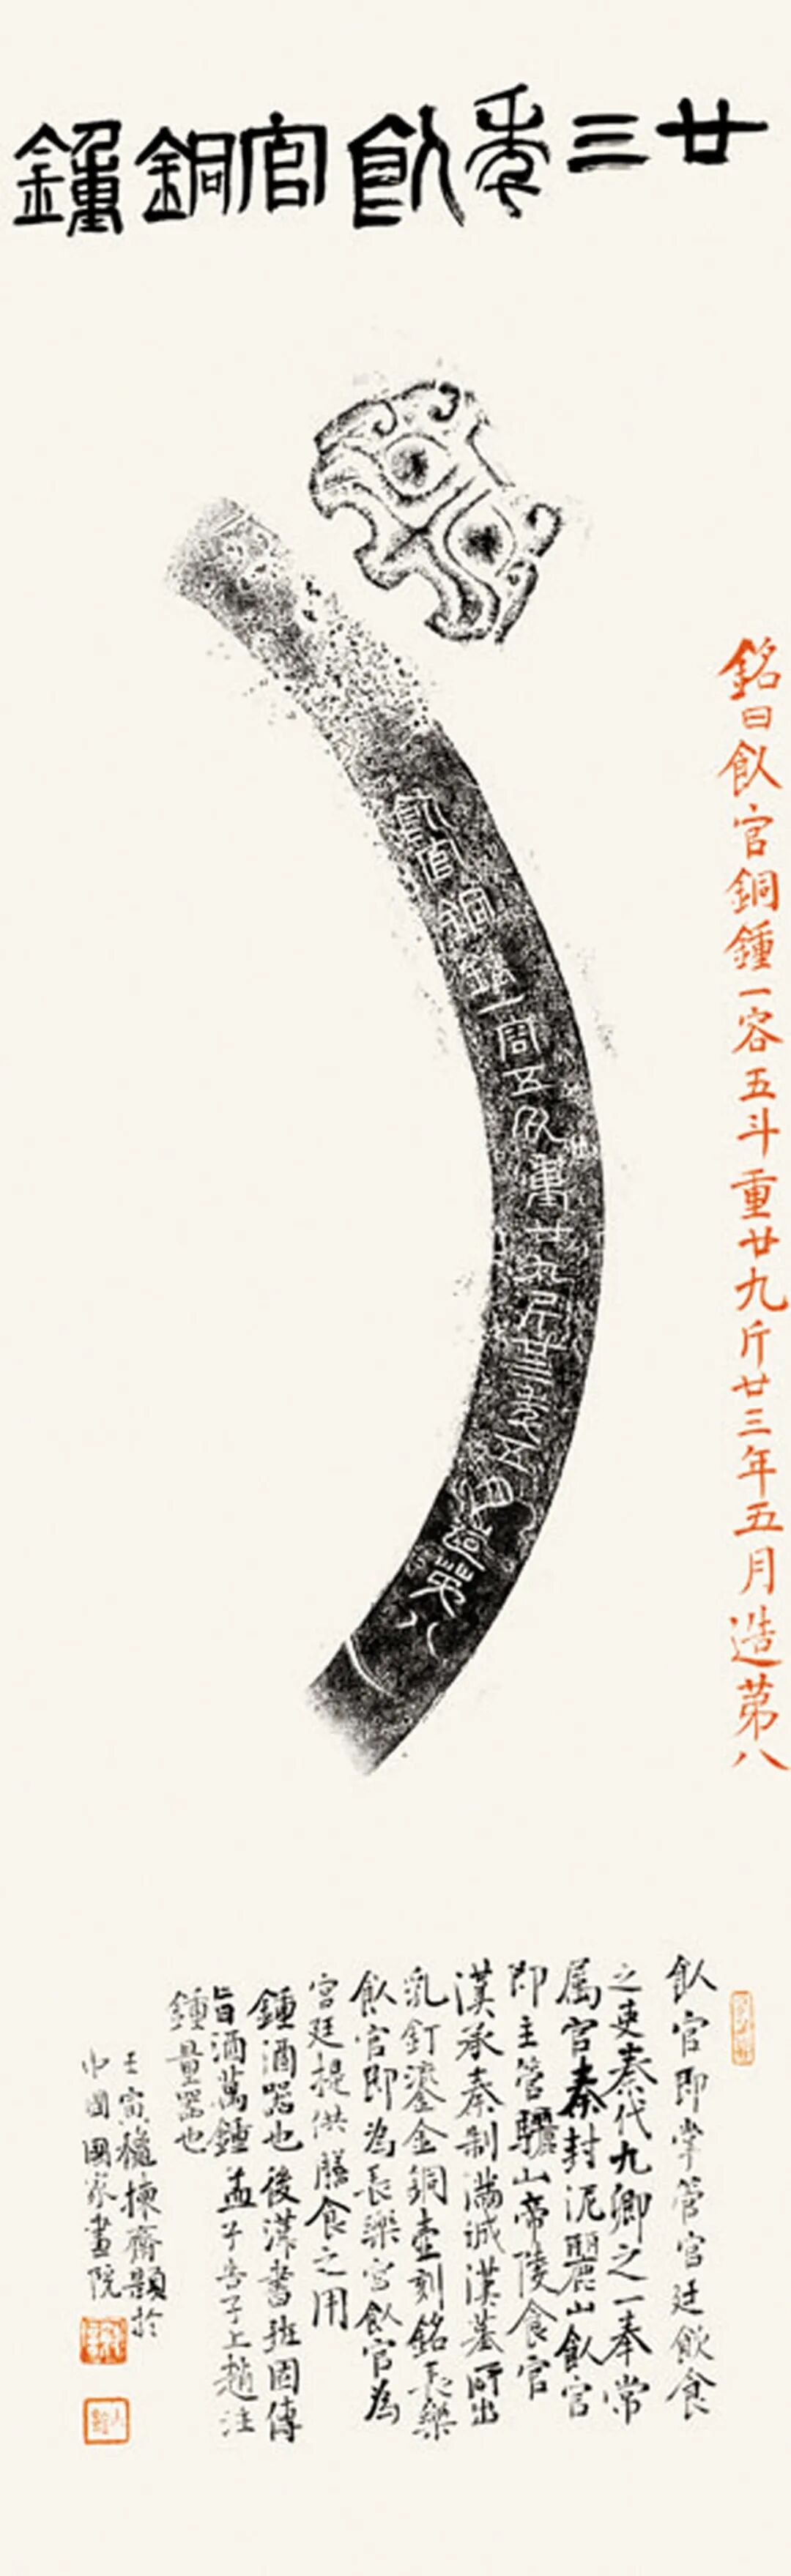 廿三年飤官銅鍾
飤官銅鍾一周五斗重廿九斤廿三年五月造第八
銘曰飤官銅鍾一容五斗重廿九斤廿三年五月造第八
飤官即掌管宫廷飲食
之吏秦代九卿之一奉常
属官秦封泥麗山飤官
即主管驪山帝陵食官
漢承秦制滿城漢墓所出
乳釘鎏金銅壺刻銘長樂
飤官即為長樂宫飤官為
宫廷提供膳食之用
鍾酒器也後漢書班固傳
旨酒萬鍾孟子告子上趙注
鍾量器也
壬寅穐揀齋題於
中國國家畫院